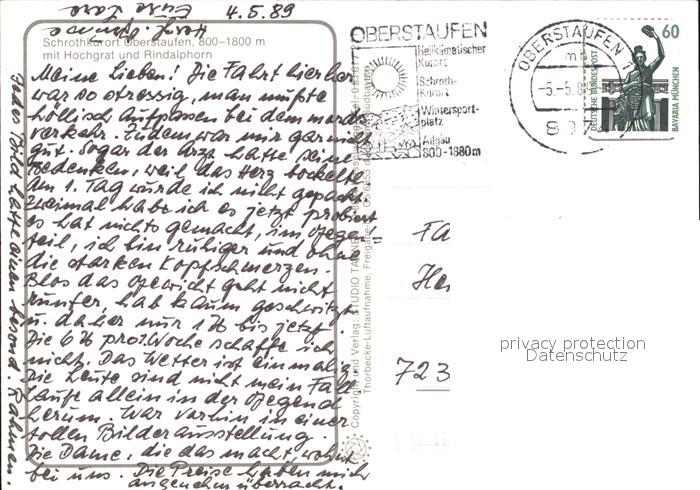 4.5.89
Schrothkurort Oberstaufen, 800–1800 m
mit Hochgrat und Rindalphorn
Meine Lieben! Die Fahrt hierher
war so stressig, man mußte
höllisch Aufpassen bei dem mords
verkehr. Zudem war mir gar nicht
gut. Sogar der Arzt hatte seine
Bedenken, weil das Herz bockelte
Am 1. Tag wurde ich nicht gepackt.
Zweimal habe ich es jetzt probiert
es hat nichts gemacht, im Gegen=
teil, ich bin ruhiger und ohne
die starken Kopfschmerzen.
Blos das Gewicht geht nicht
runter, hab kaum geschwitzt
u. daher nur 1 bis jetzt.
Die 6 pro Woche schaffe ich
nicht. Das Wetter ist einmalig
Die Leute sind nicht mein Fall
Laufe allein in der Gegend
herum. War vorhin in einer
tollen Bilderausstellung.
Die Dame, die das macht, wohnt
bei uns. Die Preise haben mich
angenehm überrascht.
Jedes Bild hatte einen besond Rahmen.
Herzl.
Eure
Copyright und Verlag: STUDIO
Thorbecke-Luftaufnahme, Freigabe
OBERSTAUFEN
Heilklimatischer
Kurort
Schroth-
Kurort
Wintersport-
platz
Allgäu
800-1800m
OBERSTAUFEN 1
-5.-5.8
897
60
DEUTSCHE BUNDESPOST
BAVARIA MÜNCHEN
Fa
He
723
privacy protection
Datenschutz